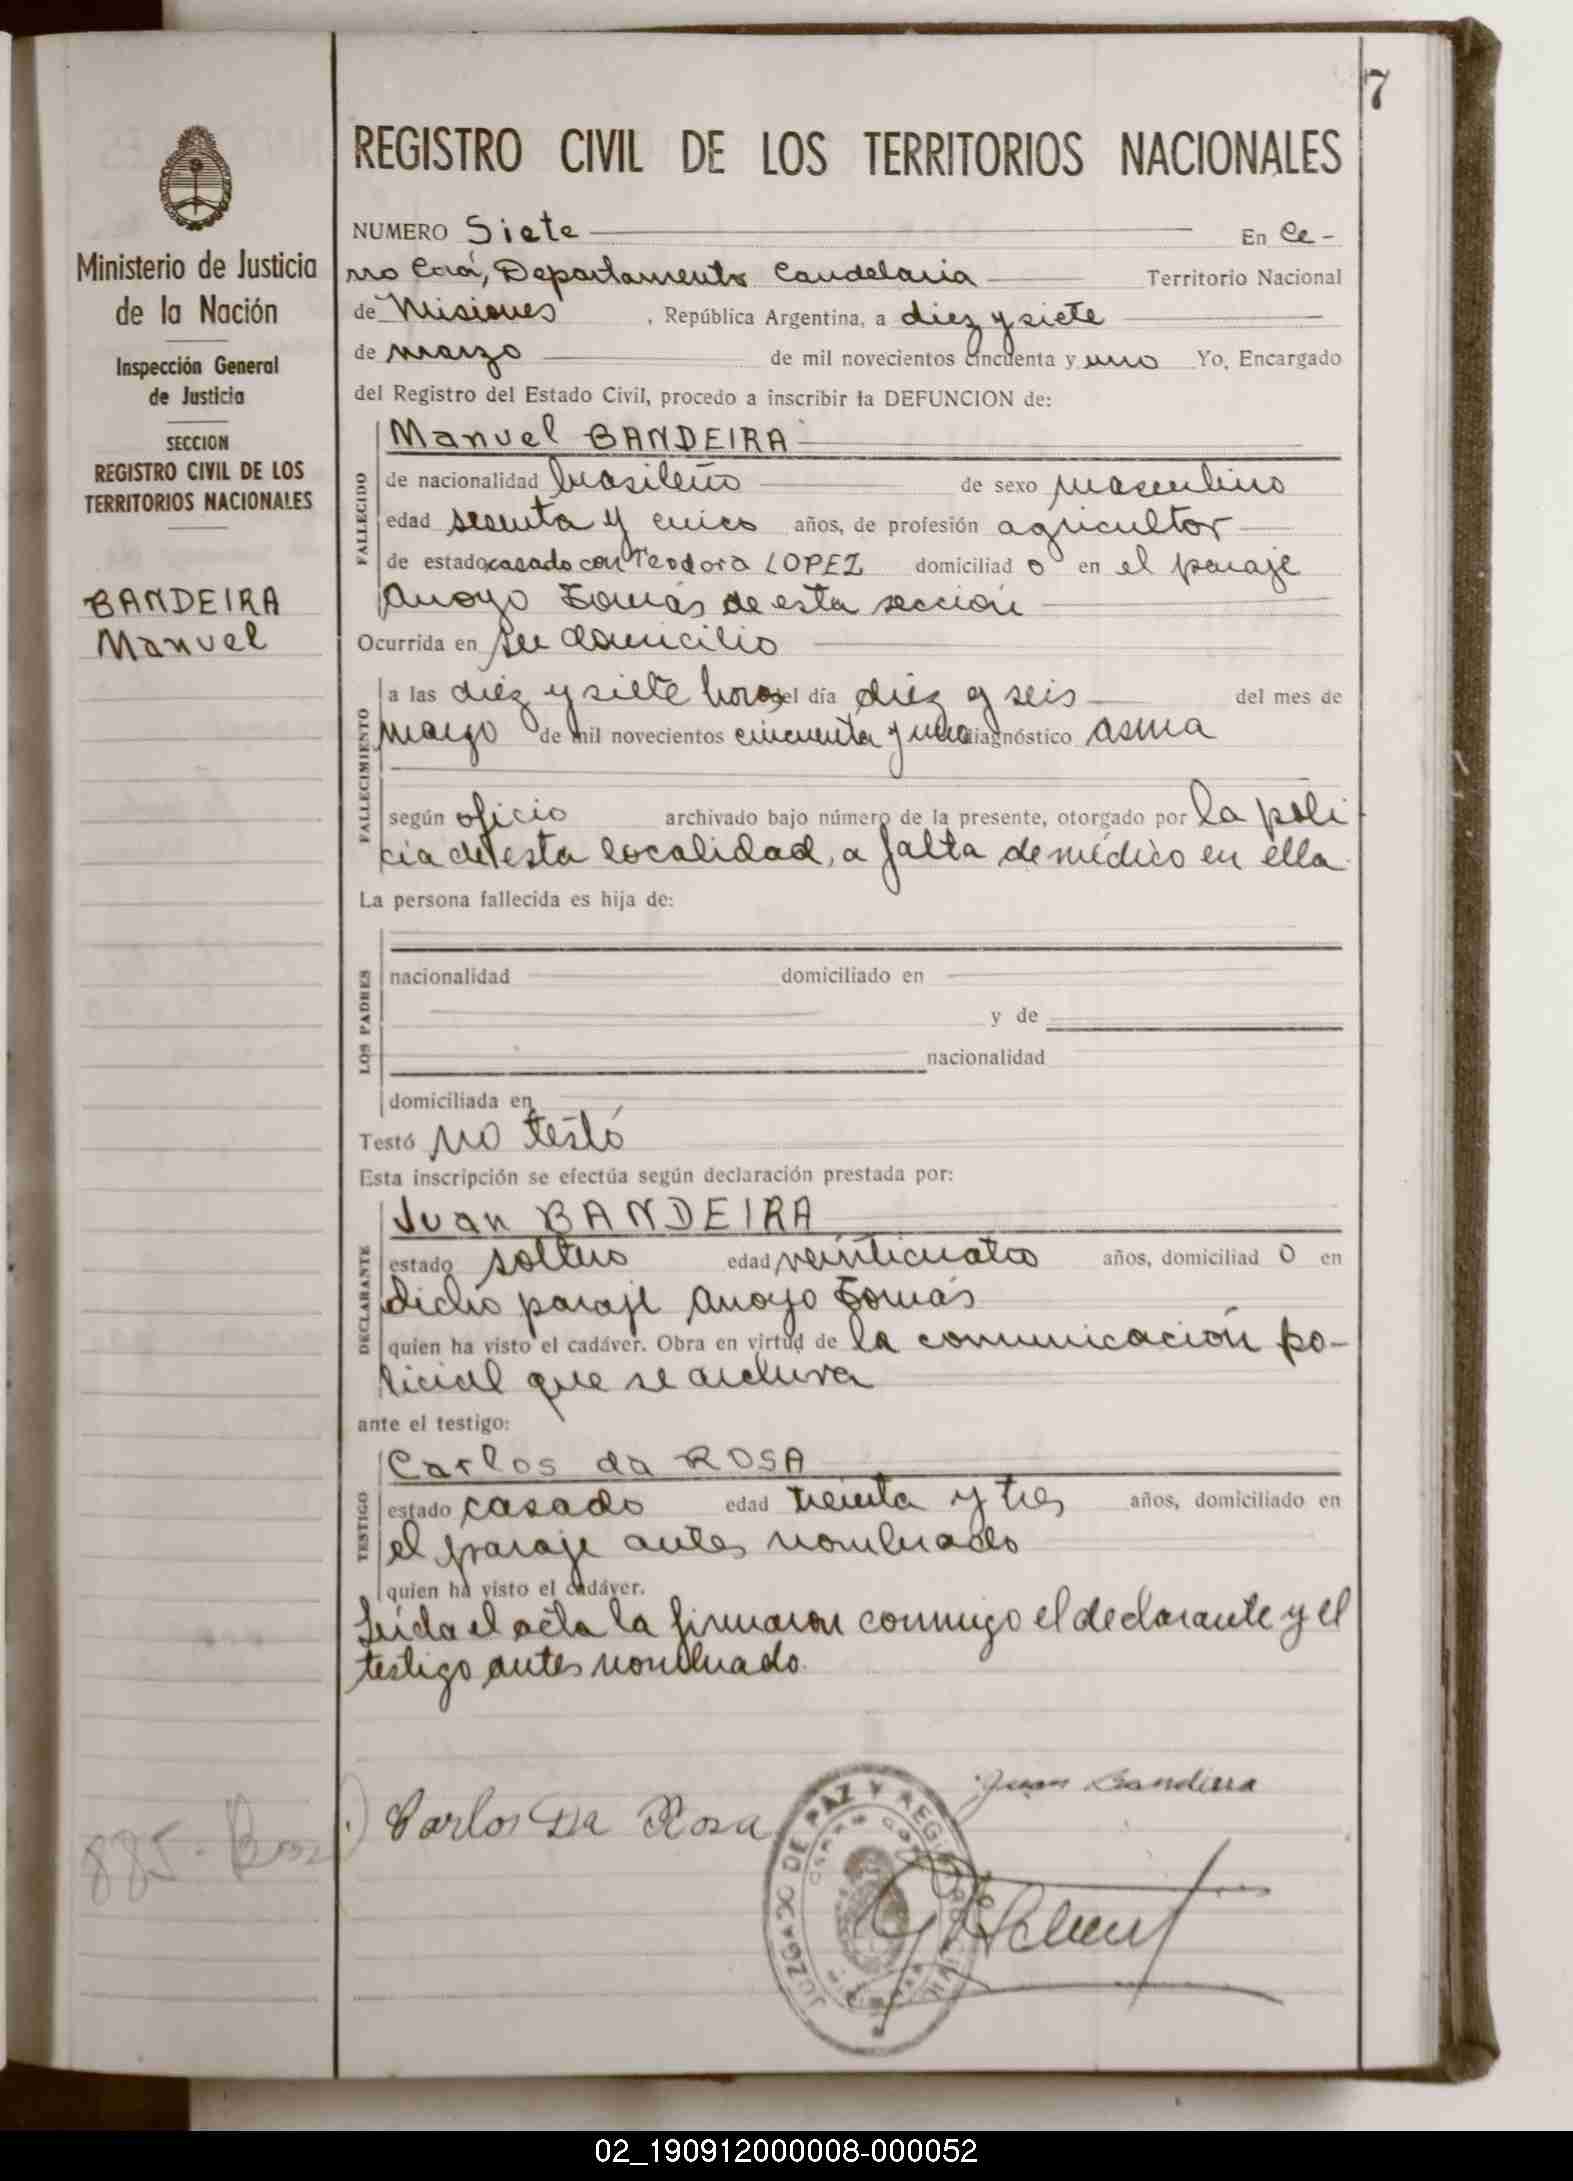 7
REGISTRO CIVIL DE LOS TERRITORIOS NACIONALES
Ministerio de Justicia
de la Nación
Inspección General
de Justicia
SECCION
REGISTRO CIVIL DE LOS
TERRITORIOS NACIONALES
BANDEIRA
Manuel
NUMERO Siete En Ce-
rro Corá, Departamento Candelaria Territorio Nacional
de Misiones , República Argentina, a diez y siete
de marzo de mil novecientos cincuenta y uno Yo, Encargado
del Registro del Estado Civil, procedo a inscribir la DEFUNCION de:
FALLECIDO
Manuel BANDEIRA
de nacionalidad brasileño de sexo masculino
edad sesenta y cinco años, de profesión agricultor
de estado casado con Teodora LOPEZ domiciliad o en el paraje
Arroyo Tomás de esta sección
Ocurrida en su domicilio
FALLECIMIENTO
a las diez y siete horas del día diez y seis del mes de
marzo de mil novecientos cincuenta y uno diagnóstico asma
según oficio archivado bajo número de la presente, otorgado por la poli
cia de esta localidad, a falta de médico en ella.
La persona fallecida es hija de:
LOS PADRES
nacionalidad domiciliado en
y de
nacionalidad
domiciliada en
Testó no testó
Esta inscripción se efectúa según declaración prestada por:
DECLARANTE
Juan BANDEIRA
estado soltero edad veinticuatro años, domiciliad o en
dicho paraje Arroyo Tomás
quien ha visto el cadáver. Obra en virtud de la comunicación po-
licial que se archiva
ante el testigo:
TESTIGO
Carlos da ROSA
estado casado edad treinta y tres años, domiciliado en
el paraje antes nombrado
quien ha visto el cadáver.
Leída el acta la firmaron conmigo el declarante y el
testigo antes nombrado.
Juan Bandiera
Carlos Da Rosa
JUZGADO DE PAZ Y REGISTRO CIVIL
885-
02_190912000008-000052